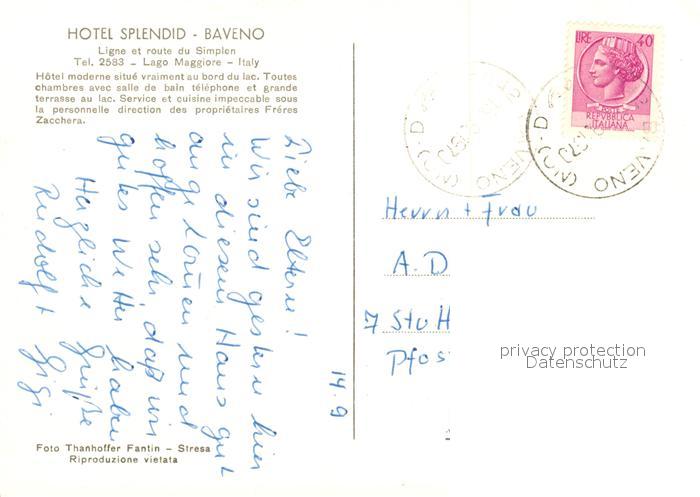 HOTEL SPLENDID - BAVENO
Ligne et route du Simplon
Tel. 2583 - Lago Maggiore - Italy
Hôtel moderne situé vraiment au bord du lac. Toutes
chambres avec salle de bain téléphone et grande
terrasse au lac. Service et cuisine impeccable sous
la personnelle direction des propriétaires Fréres
Zacchera.
14.9
Liebe Eltern!
Wir sind gestern hier
in diesem Haus gut
angekommen und
hoffen sehr, daß wir
gutes Wetter haben
Herzliche Grüße
Rudolf + Gigi
Foto Thanhoffer Fantin - Stresa
Riproduzione vietata
LIRE 40
POSTE
REPVBBLICA
ITALIANA
BAVENO (NO)
Herrn + Frau
A. D
7 Stutt
Pfos
privacy protection
Datenschutz